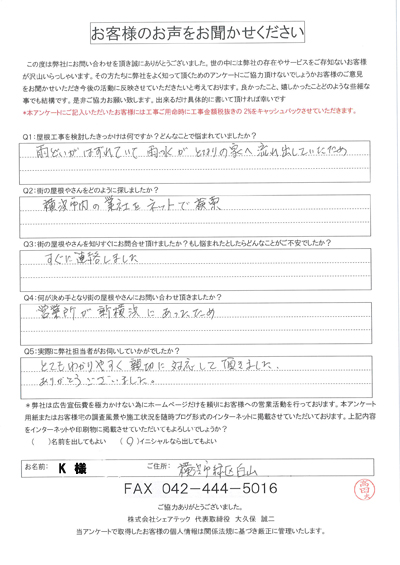 お客様のお声をお聞かせください
この度は弊社にお問い合わせを頂き誠にありがとうございました。世の中には弊社の存在やサービスをご存知ないお客様
が沢山いらっしゃいます。その方たちに弊社をよく知って頂くためのアンケートにご協力頂けないでしょうかお客様のご意見
をお聞かせいただき今後の活動に反映させていただきたいと考えております。良かったこと、嬉しかったことどのような些細な
事でも結構です。是非ご協力お願い致します。出来るだけ具体的に書いて頂ければ幸いです
*本アンケートにご記入いただいたお客様には工事ご用命時に工事金額税抜きの 2%をキャッシュバックさせていただきます。
Q1:屋根工事を検討したきっかけは何ですか?どんなことで悩まれていましたか?
雨どいがはずれていて雨水がとなりの家へ流れ出していたため
Q2:街の屋根やさんをどのように探しましたか?
横浜市内の業社をネットで検索
Q3:街の屋根やさんを知りすぐにお問合せ頂けましたか?もし悩まれたとしたらどんなことがご不安でしたか?
すぐに連絡しました
Q4:何が決め手となり街の屋根やさんにお問い合わせ頂きましたか?
営業所が新横浜にあったため
Q5:実際に弊社担当者がお伺いしていかがでしたか?
とてもわかりやすく親切に対応して頂きました。
ありがとうございました。
*弊社は広告宣伝費を極力かけない為にホームページだけを頼りにお客様への営業活動を行っております。本アンケート
用紙またはお客様での調査風景や施工状況を随時ブログ形式のインターネットに掲載させていただいております。上記内容
をインターネットや印刷物に掲載させていただいてもよろしいでしょうか?
( )名前を出してもよい (○)イニシャルなら出してもよい
お名前: K 様 ご住所: 横浜市緑区白山
FAX 042-444-5016
ご協力ありがとうございました。
株式会社シェアテック 代表取締役 大久保 誠二
当アンケートで取得したお客様の個人情報は関係法規に基づき厳正に管理いたします。